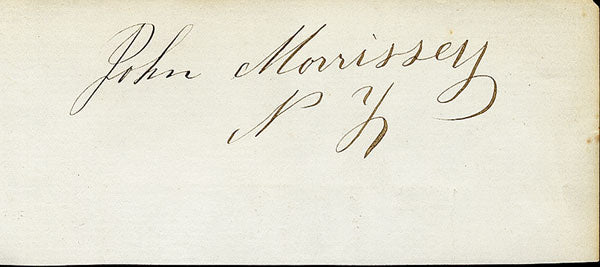 John Morrissey
N Y